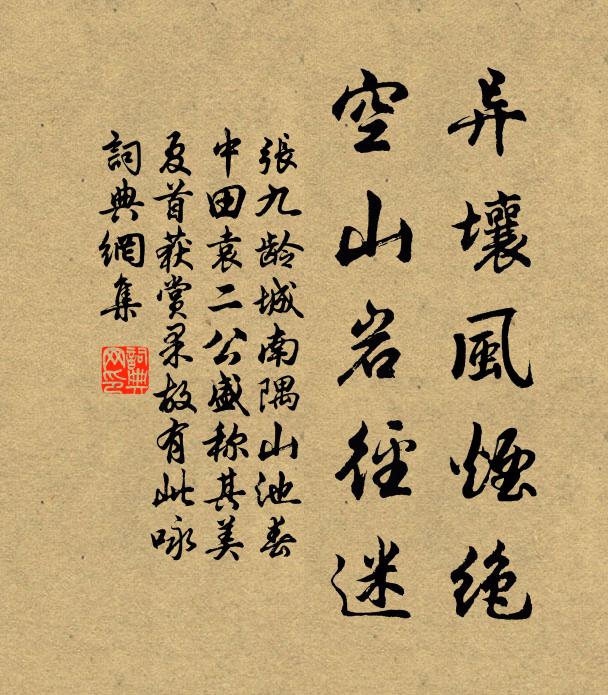 异壤風煙绝
空山岩徑迷
張九龄城南隅山池春
中田袁二公盛称其美
夏首获赏果故有此咏
詞典網集
詞典
网印